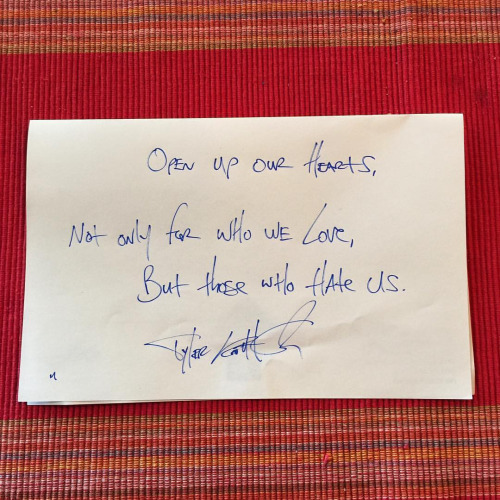 Open up our Hearts,
Not only for who we Love,
But those who Hate us.
Tyler